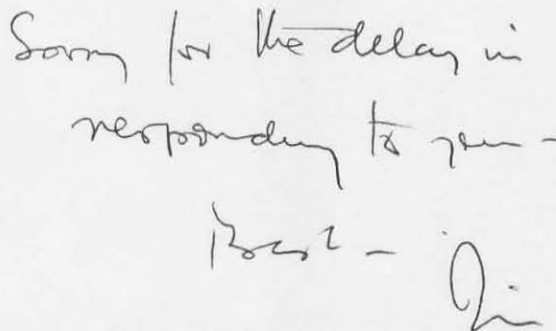 Sorry for the delay in
responding to you -
Best - Jim